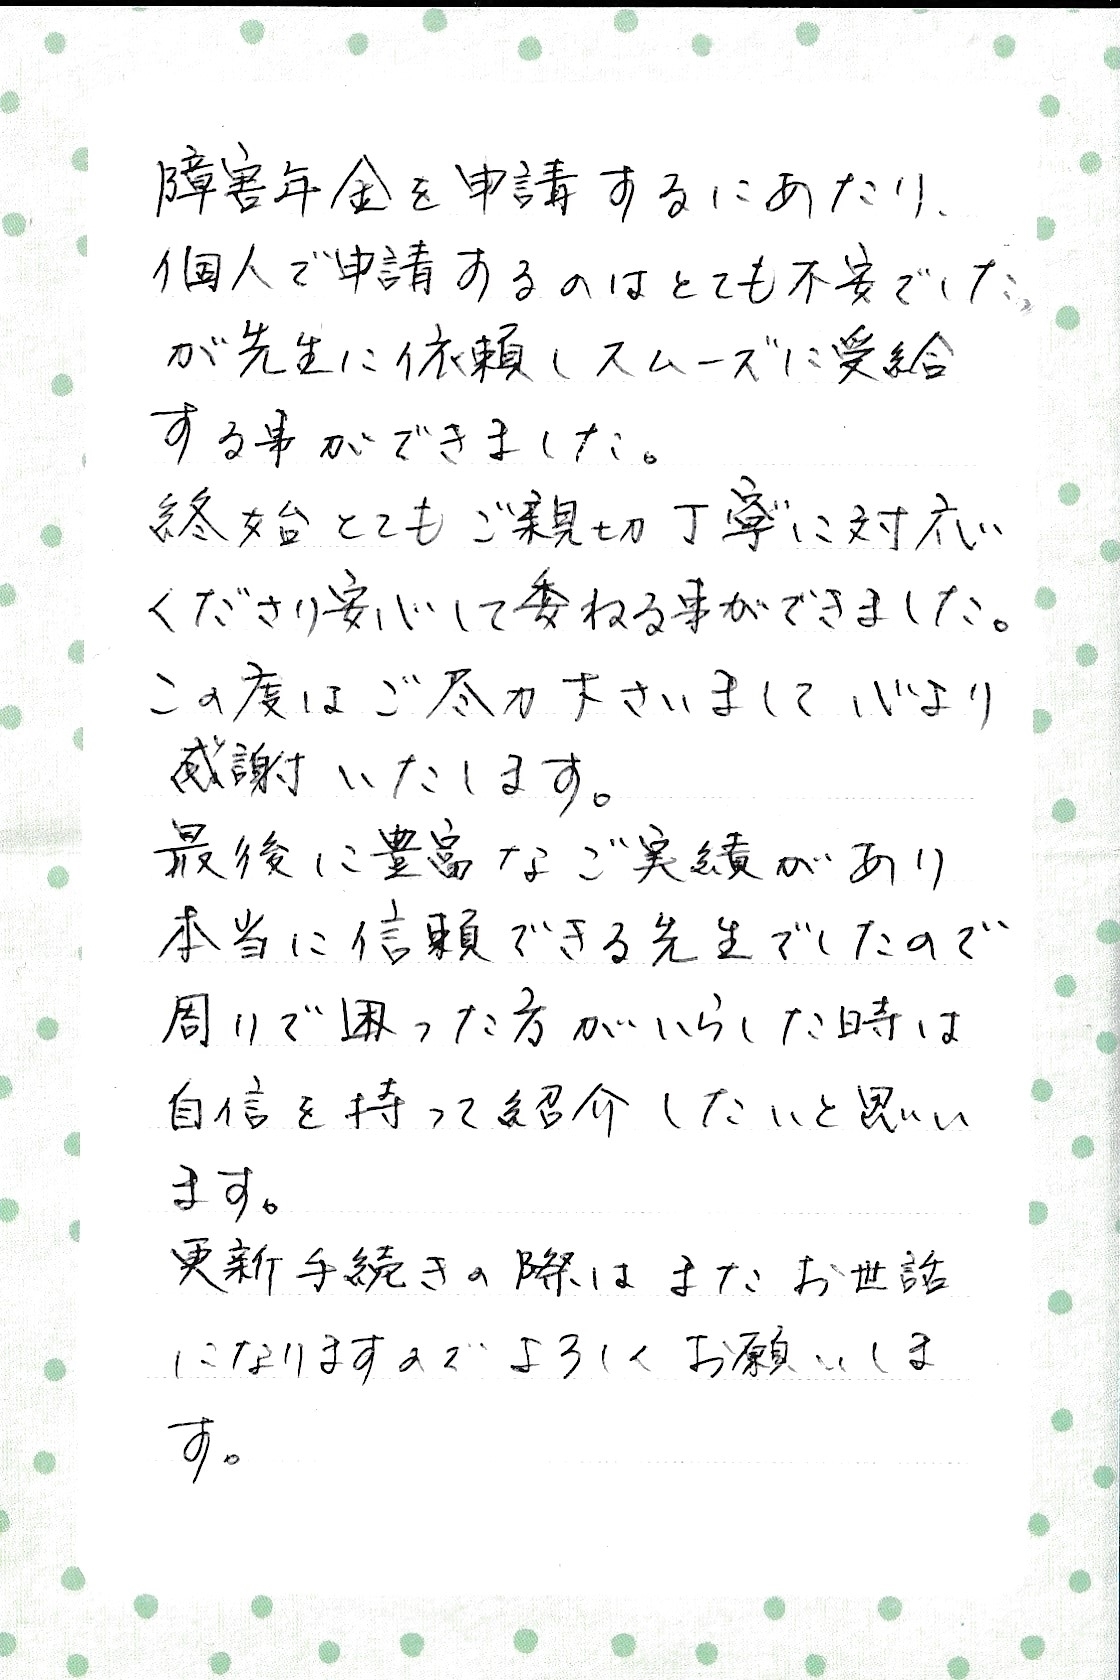 障害年金を申請するにあたり、
個人で申請するのはとても不安でした
が先生に依頼しスムーズに受給
する事ができました。
終始とてもご親切丁寧に対応
くださり安心して委ねる事ができました。
この度はご尽力下さいまして心より
感謝いたします。
最後に豊富なご実績があり
本当に信頼できる先生でしたので
周りで困った方がいらした時は
自信を持って紹介したいと思い
ます。
更新手続きの際はまたお世話
になりますのでよろしくお願いしま
す。